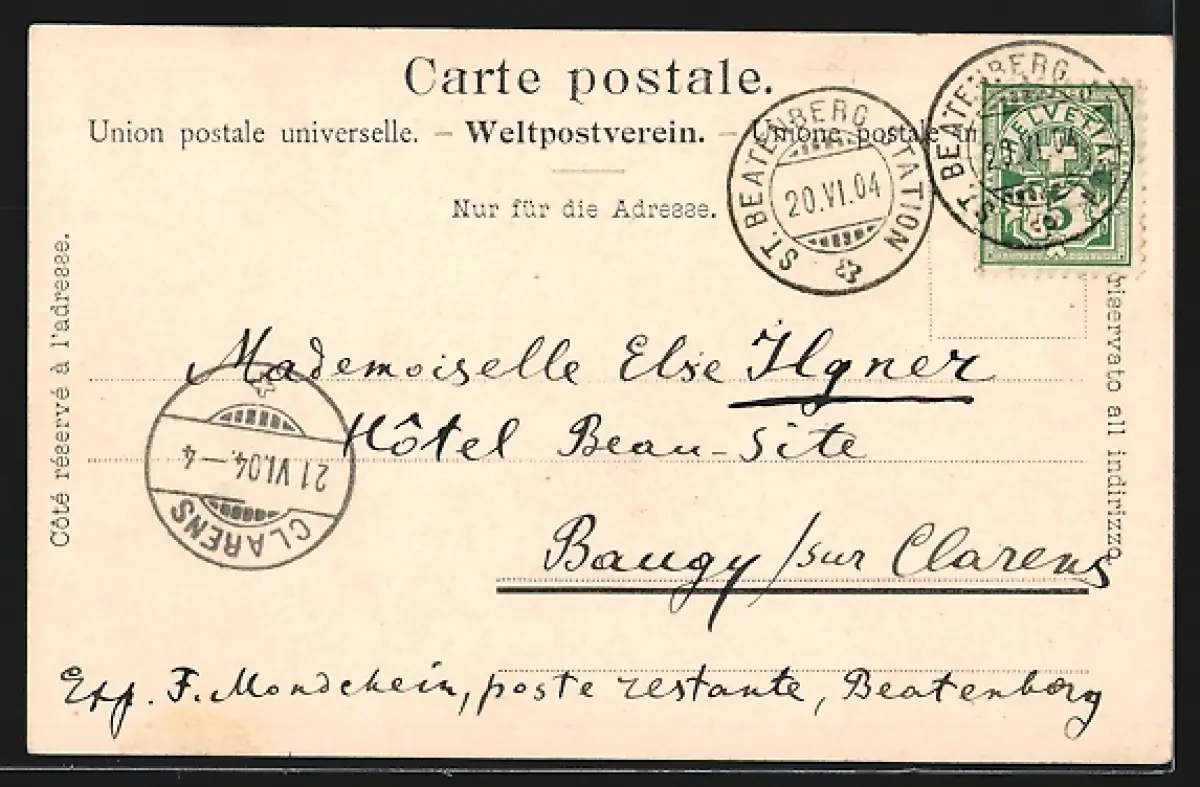 Carte postale.
Union postale universelle. – Weltpostverein. – Unione postale
Nur für die Adresse.
Côté réservé à l'adresse.
riservato all indirizzo
ST. BEATENBERG STATION
20.VI.04
ST. BEATENBERG
20.VI.04
HELVETIA
5
Mademoiselle Else Ilgner
Hôtel Beau-Site
Baugy /sur Clarens
CLARENS
21.VI.04.–4
Exp. F. Mondchein, poste restante, Beatenberg